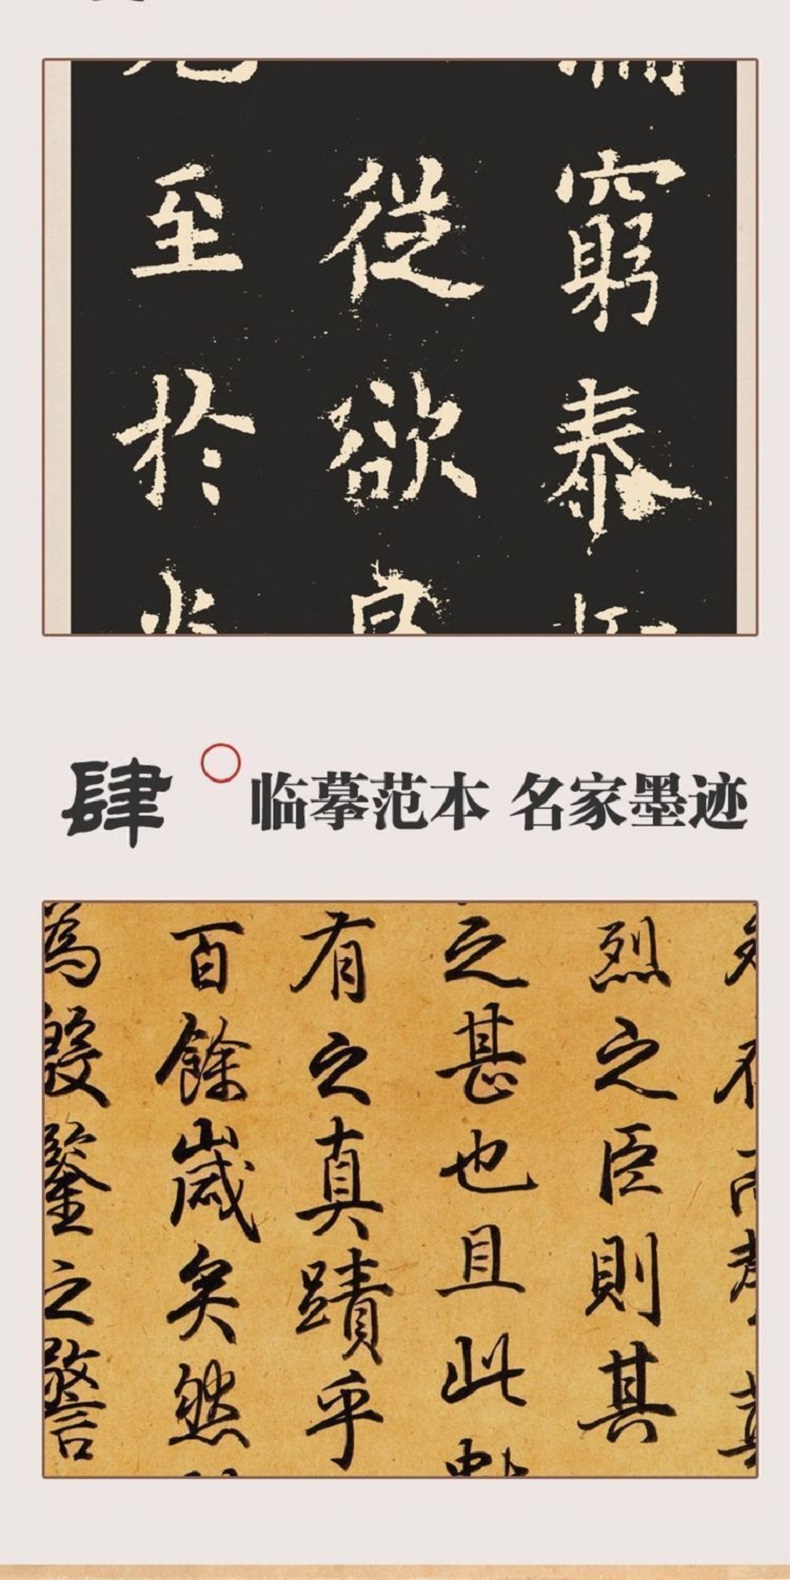 窮泰
從欲
至於
肆 临摹范本 名家墨迹
烈之臣則其
之甚也且此
有之真蹟乎
百餘歲矣然
為殷鑒之警